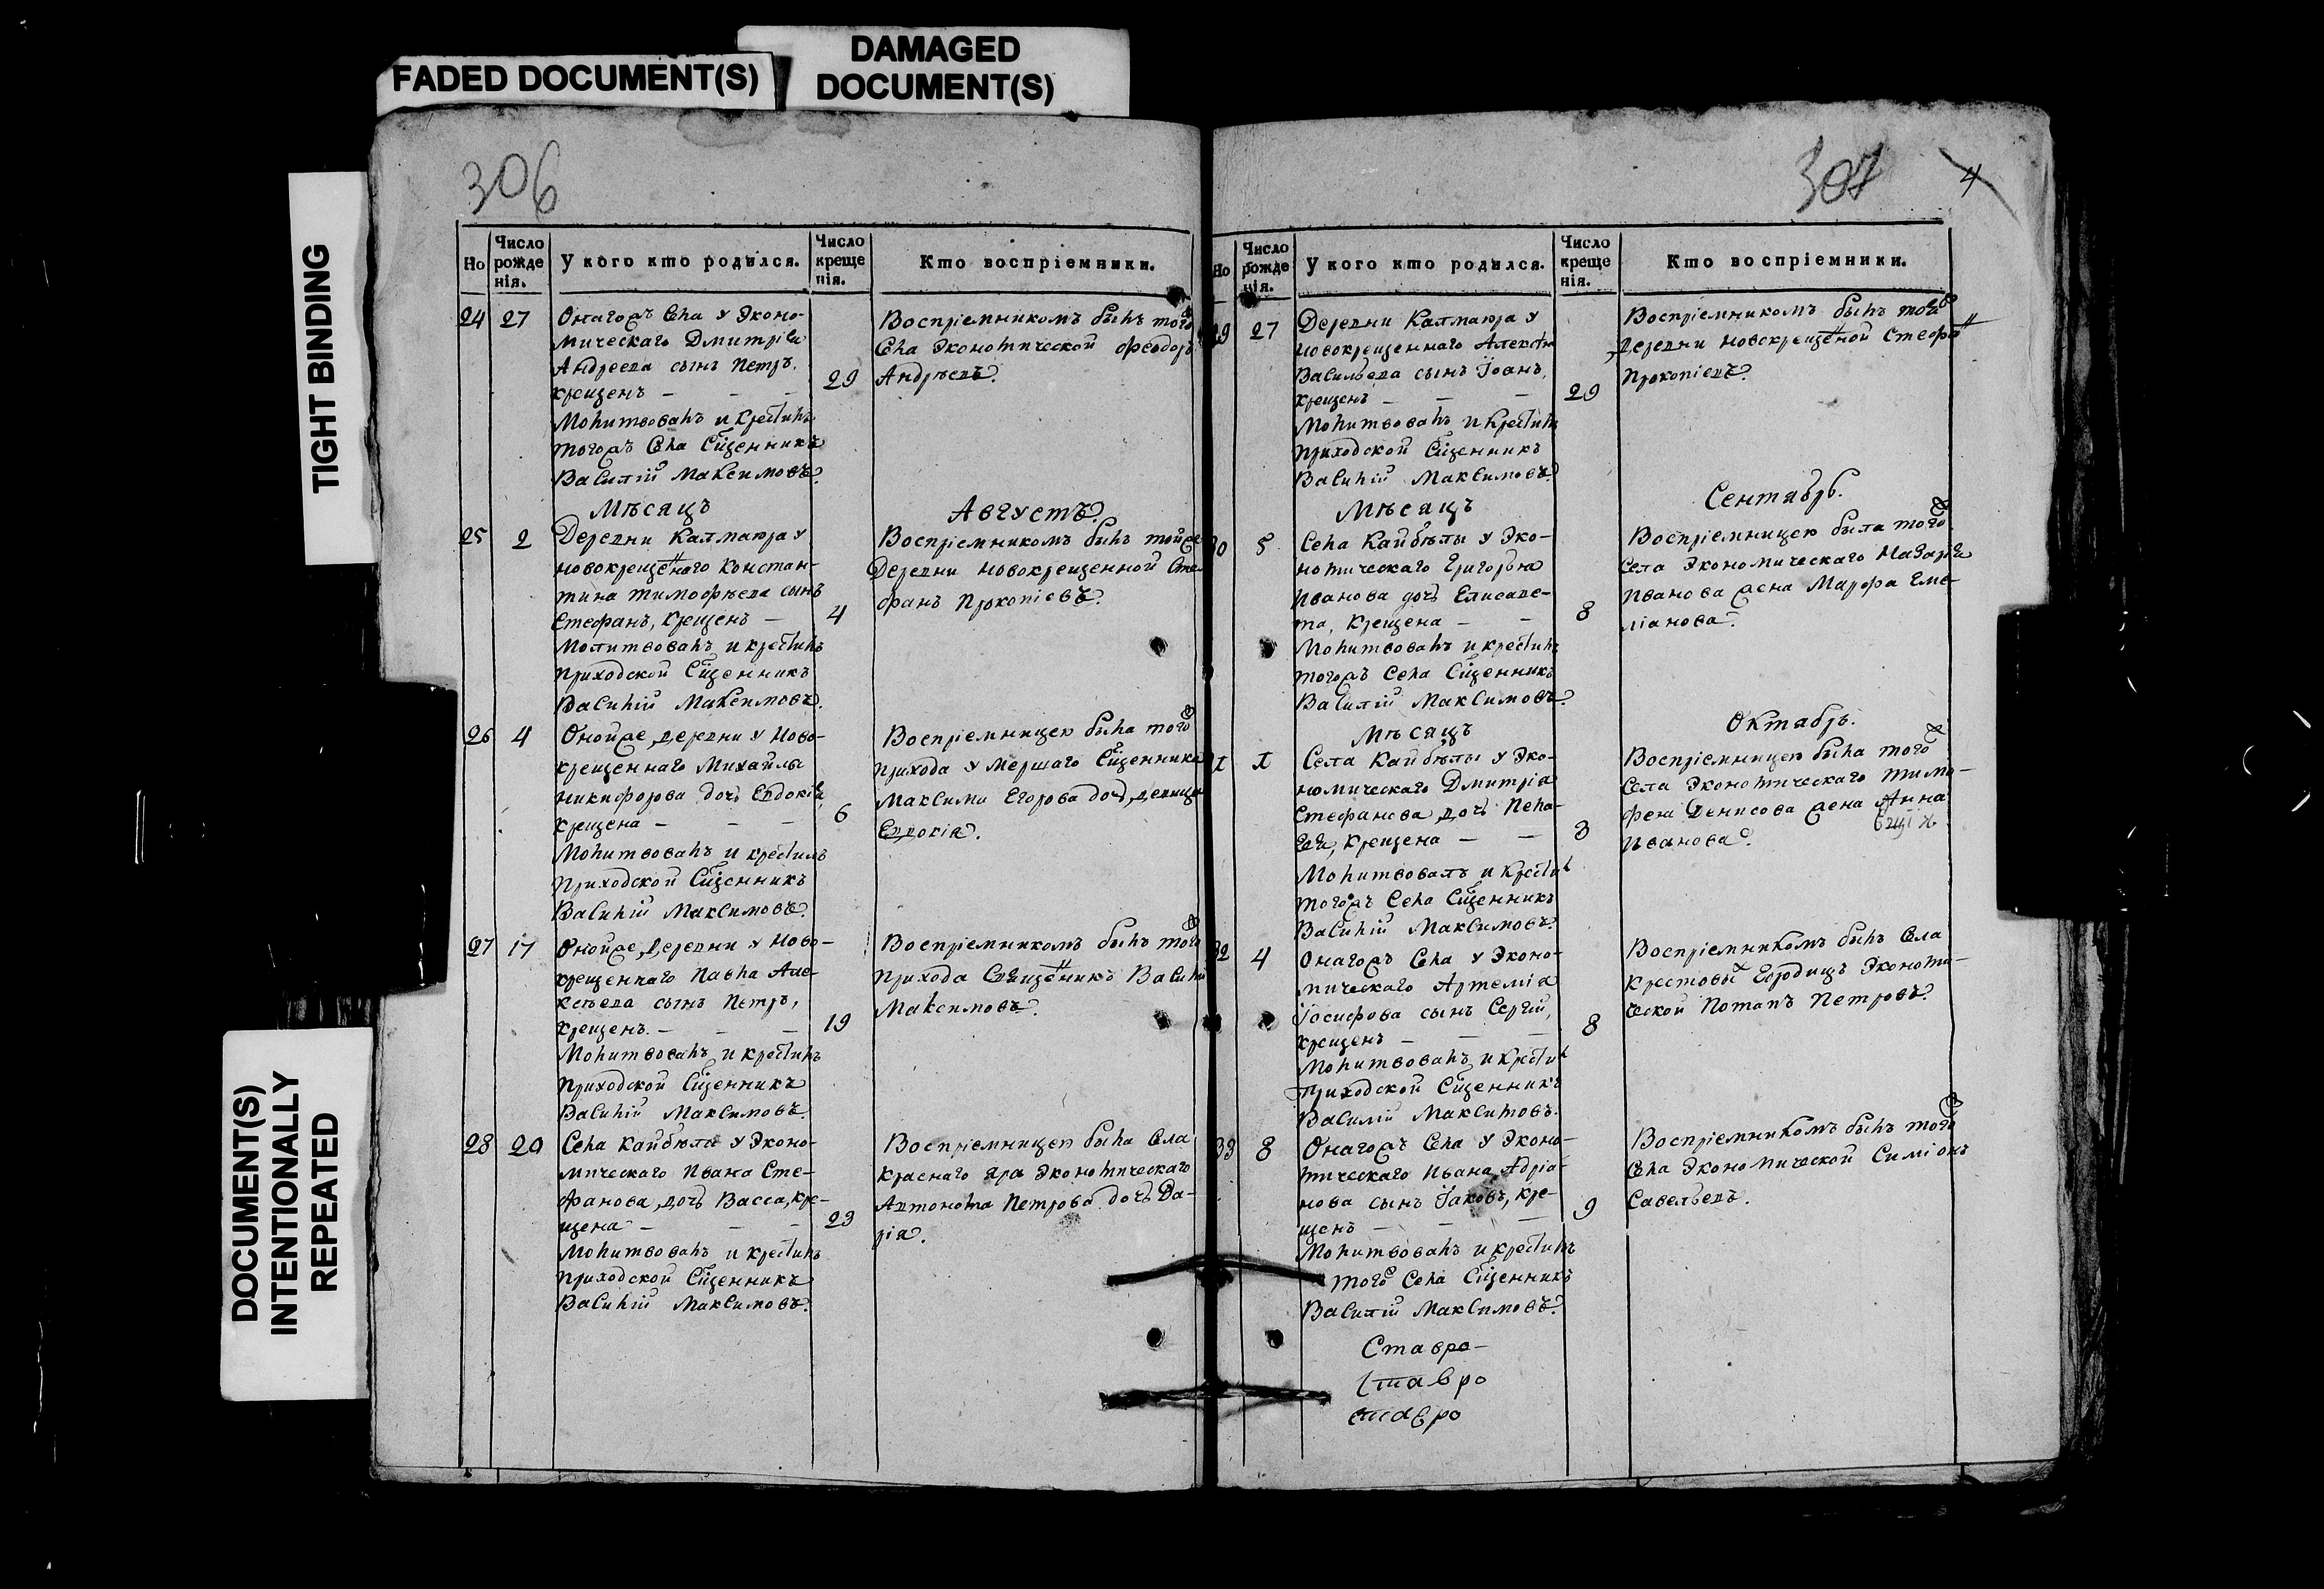 FADED DOCUMENT(S)
DAMAGED
DOCUMENT(S)
TIGHT BINDING
DOCUMENT(S)
INTENTIONALLY
REPEATED
306
Но
Число рожденія.
У кого кто родился.
Число крещенія.
Кто воспріемники.
24 27
Онагожъ Села у Эконо-
мическаго Дмитрія
Андреева сынъ Петръ,
крещенъ — — — 29
Молитвовалъ и крестилъ
тогожъ Села Сщенникъ
Василій Максимовъ.
Воспріемникомъ былъ тогож
Села Экономической Феодоръ
Андреевъ.
Мѣсяцъ Августъ.
25 2
Деревни Калмаюра у
новокрещенаго Констан-
тина Тимофѣева сынъ
Стефанъ, крещенъ — 4
Молитвовалъ и крестилъ
приходской Сщенникъ
Василій Максимовъ.
Воспріемникомъ былъ тойже
Деревни новокрещенной Сте-
фанъ Прокопіевъ.
26 4
Онойже деревни у Ново-
крещеннаго Михайлы
Никифорова дочь Евдокія,
крещена — — — 6
Молитвовалъ и крестилъ
приходской Сщенникъ
Василій Максимовъ.
Воспріемницею была тогож
прихода умершаго Сщенника
Максима Егорова дочь девица
Евдокія.
27 17
Онойже деревни у Ново-
крещеннаго Павла Але-
ксѣева сынъ Петръ,
крещенъ — — — 19
Молитвовалъ и крестилъ
приходской Сщенникъ
Василій Максимовъ.
Воспріемникомъ былъ тогож
прихода Священикъ Василій
Максимовъ.
28 20
Села Кайбѣлы у Эконо-
мическаго Ивана Сте-
фанова, дочь Васса, кре-
щена — — — 23
Молитвовалъ и крестилъ
приходской Сщенникъ
Василій Максимовъ.
Воспріемницею была Села
Краснаго Яра Экономическаго
Автонома Петрова дочь Да-
рія.
307
4
Но
Число рожденія.
У кого кто родился.
Число крещенія.
Кто воспріемники.
29 27
Деревни Калмаюра у
новокрещеннаго Алексѣя
Васильева сынъ Іоанъ,
крещенъ — — — 29
Молитвовалъ и крестилъ
приходской Сщенникъ
Василій Максимовъ.
Воспріемникомъ былъ тойж
деревни новокрещеной Стефан
Прокопіевъ.
Мѣсяцъ Сентябрь.
30 5
Села Кайбѣлы у Эко-
номическаго Григорья
Иванова дочь Елисаве-
та, крещена — — 8
Молитвовалъ и крестилъ
тогожъ Села Сщенникъ
Василій Максимовъ.
Воспріемницею была тогож
Села Экономическаго Назарія
Иванова жена Марфа Еме-
ліанова.
Мѣсяцъ Октябрь.
31 1
Села Кайбѣлы у Эко-
номическаго Дмитрія
Стефанова, дочь Пела-
гея, крещена — — 3
Молитвовалъ и крестил
тогожъ Села Сщенникъ
Василій Максимовъ.
Воспріемницею была тогож
Села Экономическаго Тимо-
фея Денисова жена Анна
Иванова.
32 4
Онагожъ Села у Эконо-
мическаго Артемія
Іосифова сынъ Сергій,
крещенъ — — 8
Молитвовалъ и крестил
приходской Сщенникъ
Василій Максимовъ.
Воспріемникомъ былъ Села
Крестовы Городищъ Экономи-
ческой Потапъ Петровъ.
33 8
Онагожъ Села у Эконо-
мическаго Ивана Адріа-
нова сынъ Іаковъ, кре-
щенъ — — — 9
Молитвовалъ и крестилъ
того Села Сщенникъ
Василій Максимовъ.
Воспріемникомъ былъ тогож
Села Экономической Симіонъ
Савельевъ.
Ставро-
Ставро
Ставро